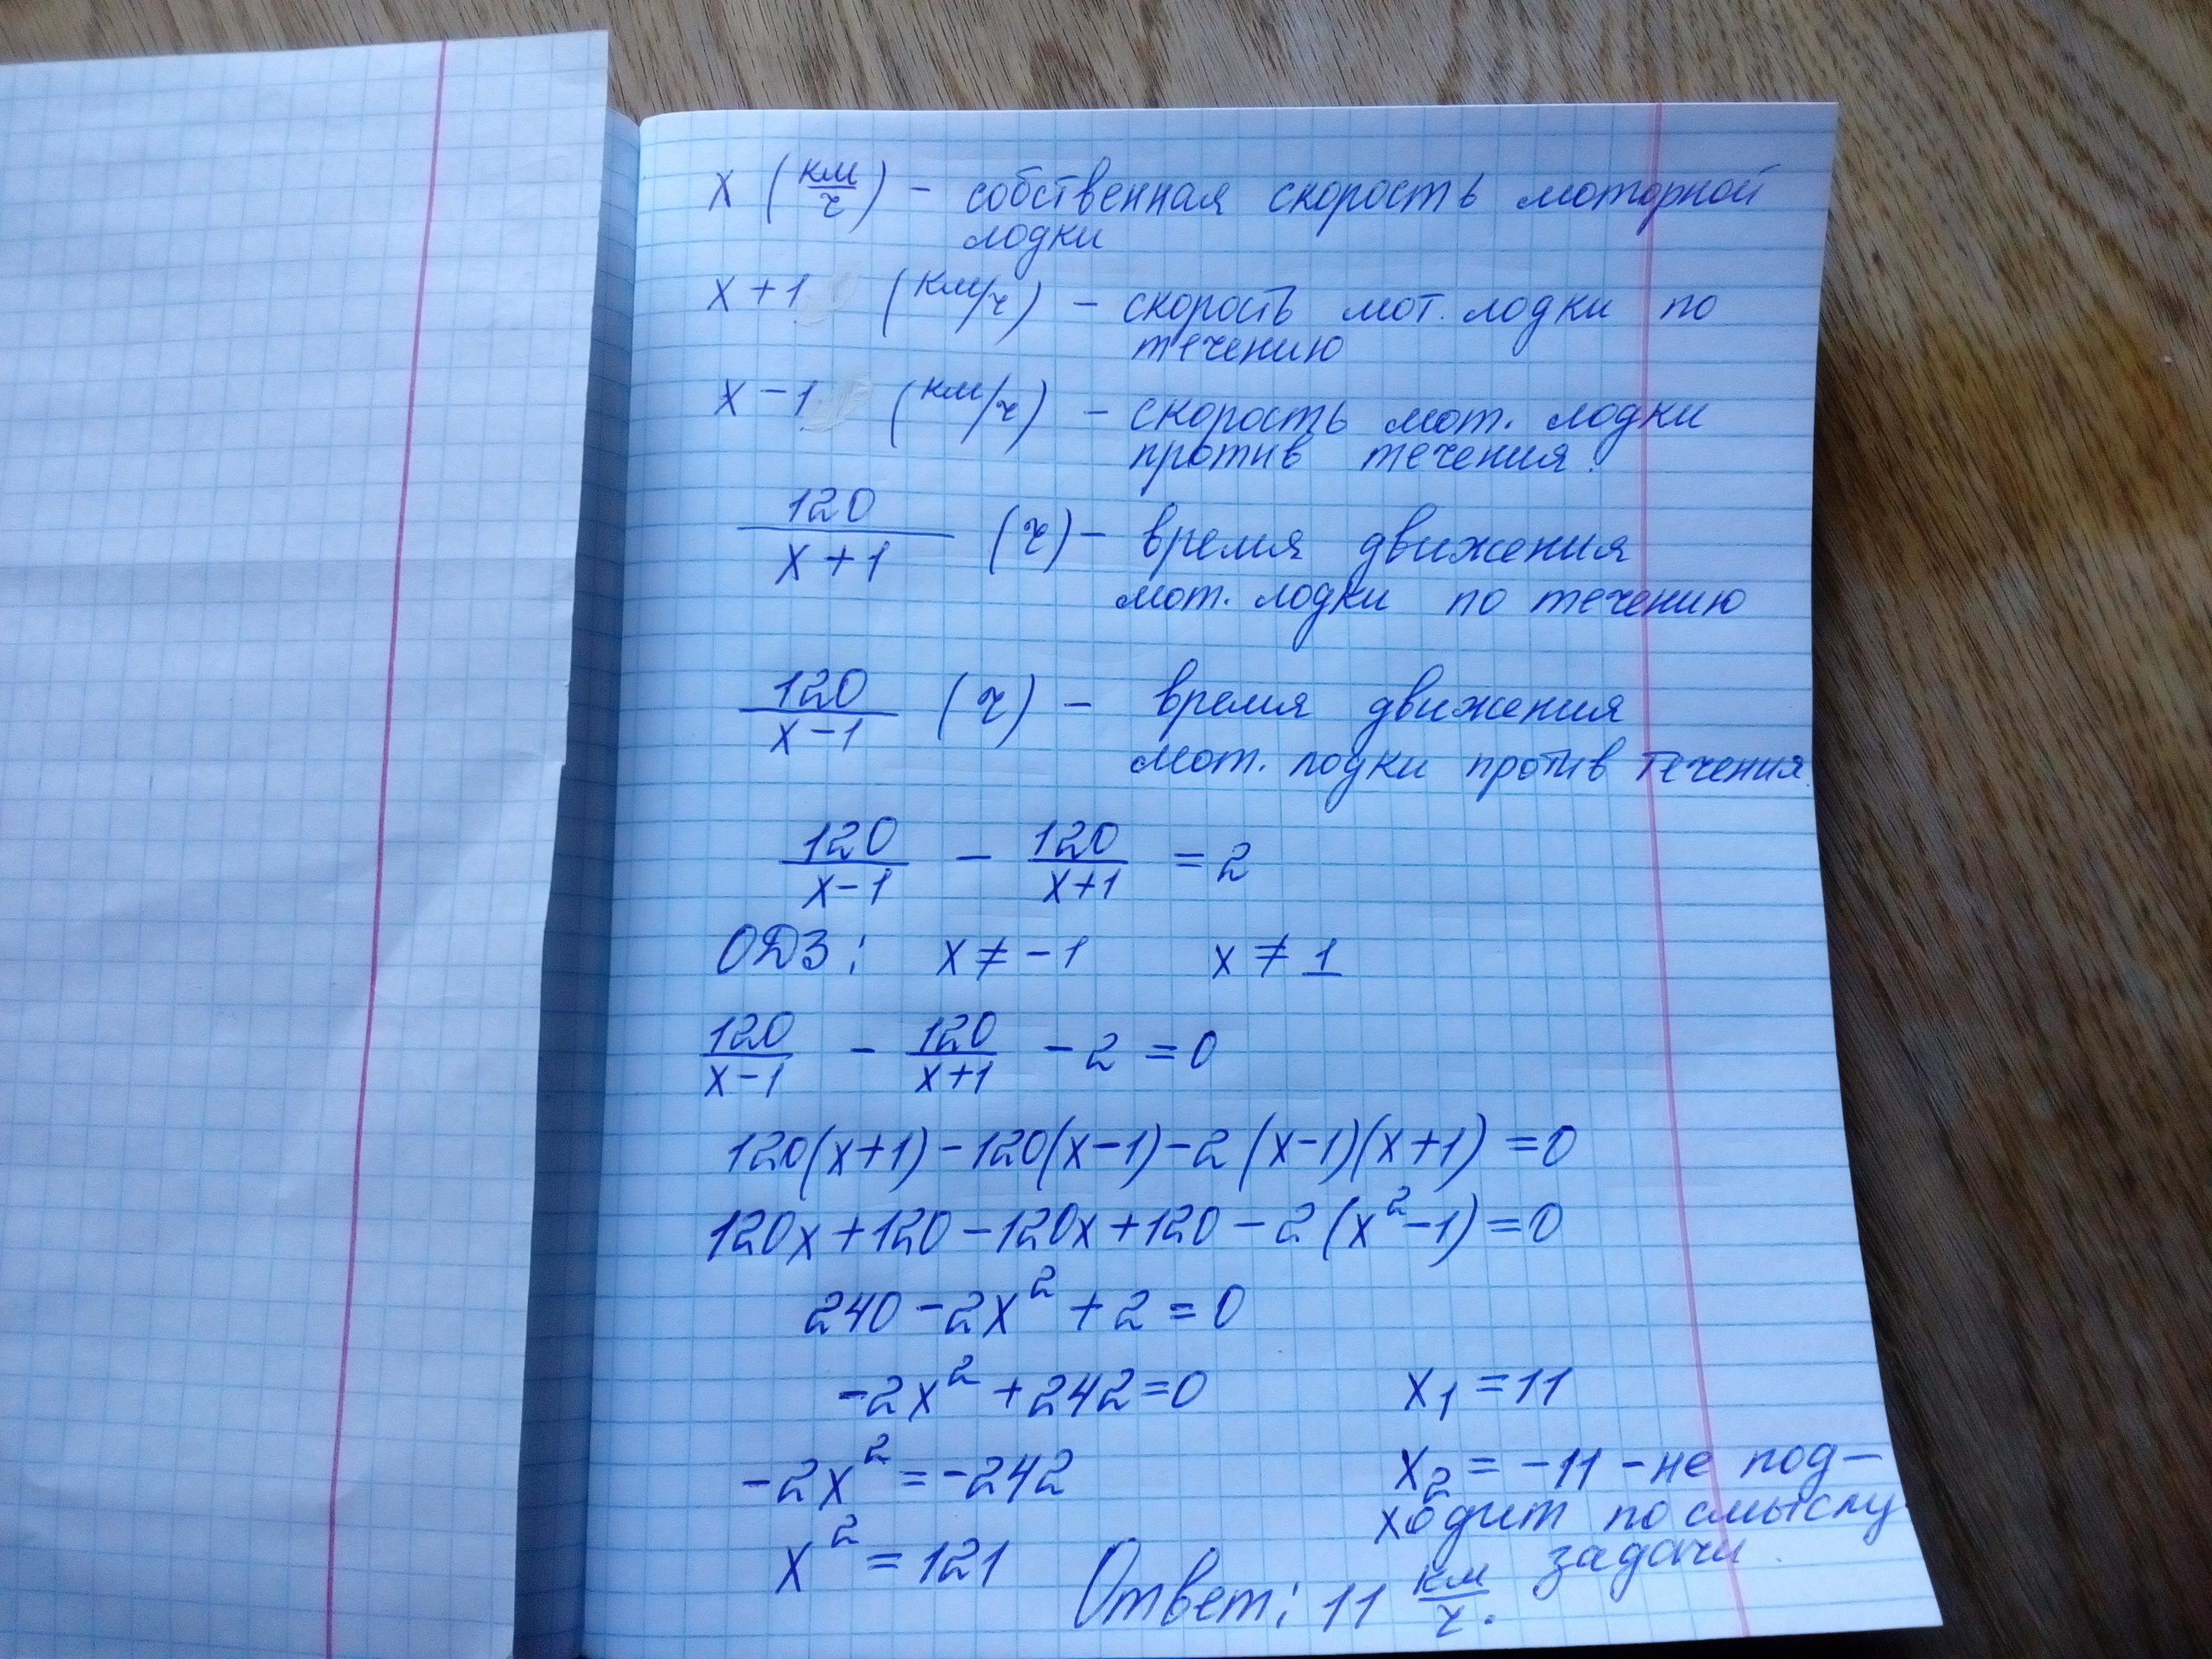 x (км/ч) – собственная скорость моторной
лодки
x + 1 (км/ч) – скорость мот. лодки по
течению
x – 1 (км/ч) – скорость мот. лодки
против течения.
120/(x+1) (ч) – время движения
мот. лодки по течению
120/(x–1) (ч) – время движения
мот. лодки против течения.
120/(x–1) – 120/(x+1) = 2
ОДЗ: x ≠ –1 x ≠ 1
120/(x–1) – 120/(x+1) – 2 = 0
120(x+1) – 120(x–1) – 2(x–1)(x+1) = 0
120x + 120 – 120x + 120 – 2(x² – 1) = 0
240 – 2x² + 2 = 0
–2x² + 242 = 0
–2x² = –242
x² = 121
x₁ = 11
x₂ = –11 – не под–
ходит по смыслу
задачи.
Ответ: 11 км/ч.